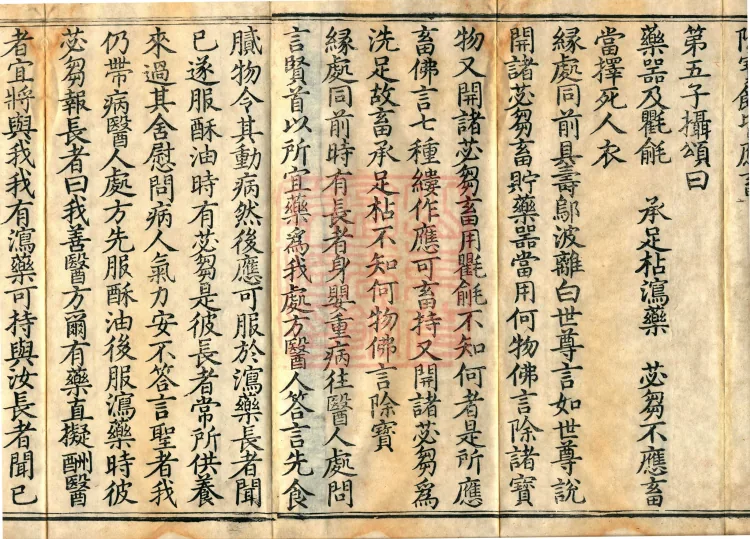 第五子攝頌曰
藥器及氍毹　承足枮瀉藥　苾芻不應畜
當擇死人衣
緣處同前具壽鄔波離白世尊言如世尊說
開諸苾芻畜貯藥器當用何物佛言除諸寶
物又開諸苾芻畜用氍毹不知何者是所應
畜佛言七種縷作應可畜持又開諸苾芻爲
洗足故畜承足枮不知何物佛言除寶
緣處同前時有長者身嬰重病往醫人處問
言賢首以所宜藥爲我處方醫人答言先食
膩物令其動病然後應可服於瀉藥長者聞
已遂服酥油時有苾芻是彼長者常所供養
來過其舍慰問病人氣力安不答言聖者我
仍帶病醫人處方先服酥油後服瀉藥時彼
苾芻報長者曰我善醫方爾有藥直擬酬醫
者宜將與我我有瀉藥可持與汝長者聞已